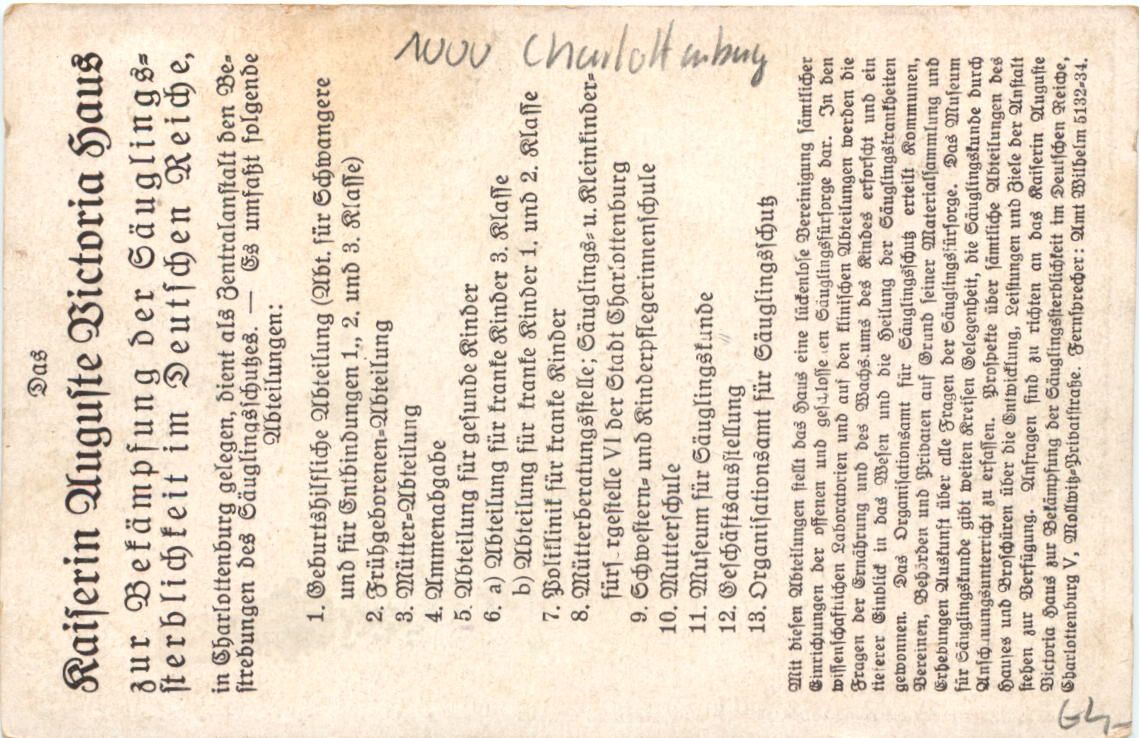 Das
Kaiserin Auguste Victoria Haus
zur Bekämpfung der Säuglings-
sterblichkeit im Deutschen Reiche,
in Charlottenburg gelegen, dient als Zentralanstalt den Be-
strebungen des Säuglingsschutzes. — Es umfaßt folgende
Abteilungen:
1. Geburtshilfliche Abteilung (Abt. für Schwangere
und für Entbindungen 1., 2. und 3. Klasse)
2. Frühgeborenen-Abteilung
3. Mütter-Abteilung
4. Ammenabgabe
5. Abteilung für gesunde Kinder
6. a) Abteilung für kranke Kinder 3. Klasse
b) Abteilung für kranke Kinder 1. und 2. Klasse
7. Poliklinik für kranke Kinder
8. Mütterberatungsstelle; Säuglings- u. Kleinkinder-
fürsorgestelle VI der Stadt Charlottenburg
9. Schwestern- und Kinderpflegerinnenschule
10. Mutterschule
11. Museum für Säuglingskunde
12. Geschäftsausstellung
13. Organisationsamt für Säuglingsschutz
Mit diesen Abteilungen stellt das Haus eine lückenlose Vereinigung sämtlicher
Einrichtungen der offenen und geschlossenen Säuglingsfürsorge dar. In den
wissenschaftlichen Laboratorien und auf den klinischen Abteilungen werden die
Fragen der Ernährung und des Wachstums des Kindes erforscht und ein
tieferer Einblick in das Wesen und die Heilung der Säuglingskrankheiten
gewonnen. Das Organisationsamt für Säuglingsschutz erteilt Kommunen,
Vereinen, Behörden und Privaten auf Grund seiner Materialsammlung und
Erhebungen Auskunft über alle Fragen der Säuglingsfürsorge. Das Museum
für Säuglingskunde gibt weiten Kreisen Gelegenheit, die Säuglingskunde durch
Anschauungsunterricht zu erfassen. Prospekte über sämtliche Abteilungen des
Hauses und Broschüren über die Entwicklung, Leistungen und Ziele der Anstalt
stehen zur Verfügung. Anfragen sind zu richten an das Kaiserin Auguste
Victoria Haus zur Bekämpfung der Säuglingssterblichkeit im Deutschen Reiche,
Charlottenburg V, Mollwitz-Privatstraße. Fernsprecher: Amt Wilhelm 5132-34.
1000 Charlottenburg